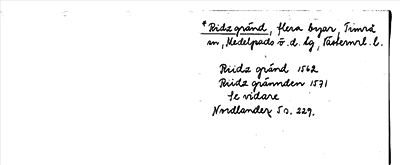 * Ridz gränd, flera byar, Timrå
sn, Medelpads v. d. lg, Västernrl. l.
Riidz gränd 1562
Riidz grännden 1571
Se vidare
Nordlander s. 229.